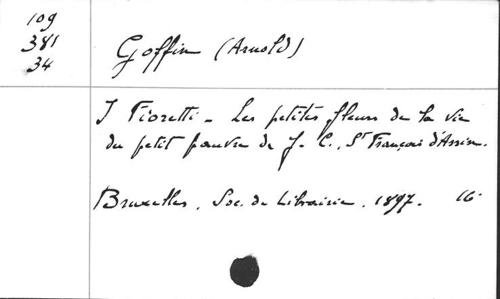 109
381
34
Goffin (Arnold)
I Fioretti - Les petites fleurs de la vie
du petit pauvre de J. C., St François d'Assise.
Bruxelles, Soc. de Librairie, 1897. 16°